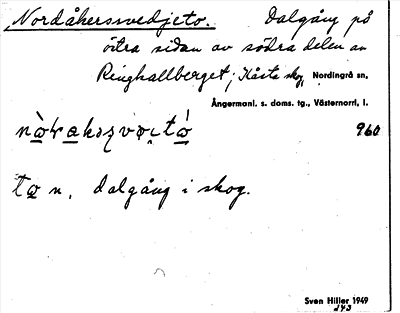 Nordåkerssvedjeto. Dalgång på
östra sidan av södra delen av
Ringkallberget; Kåsta skog, Nordingrå sn,
Ångermanl. s. doms. tg., Västernorrl. l.
960
to n. dalgång i skog.
Sven Hiller 1949